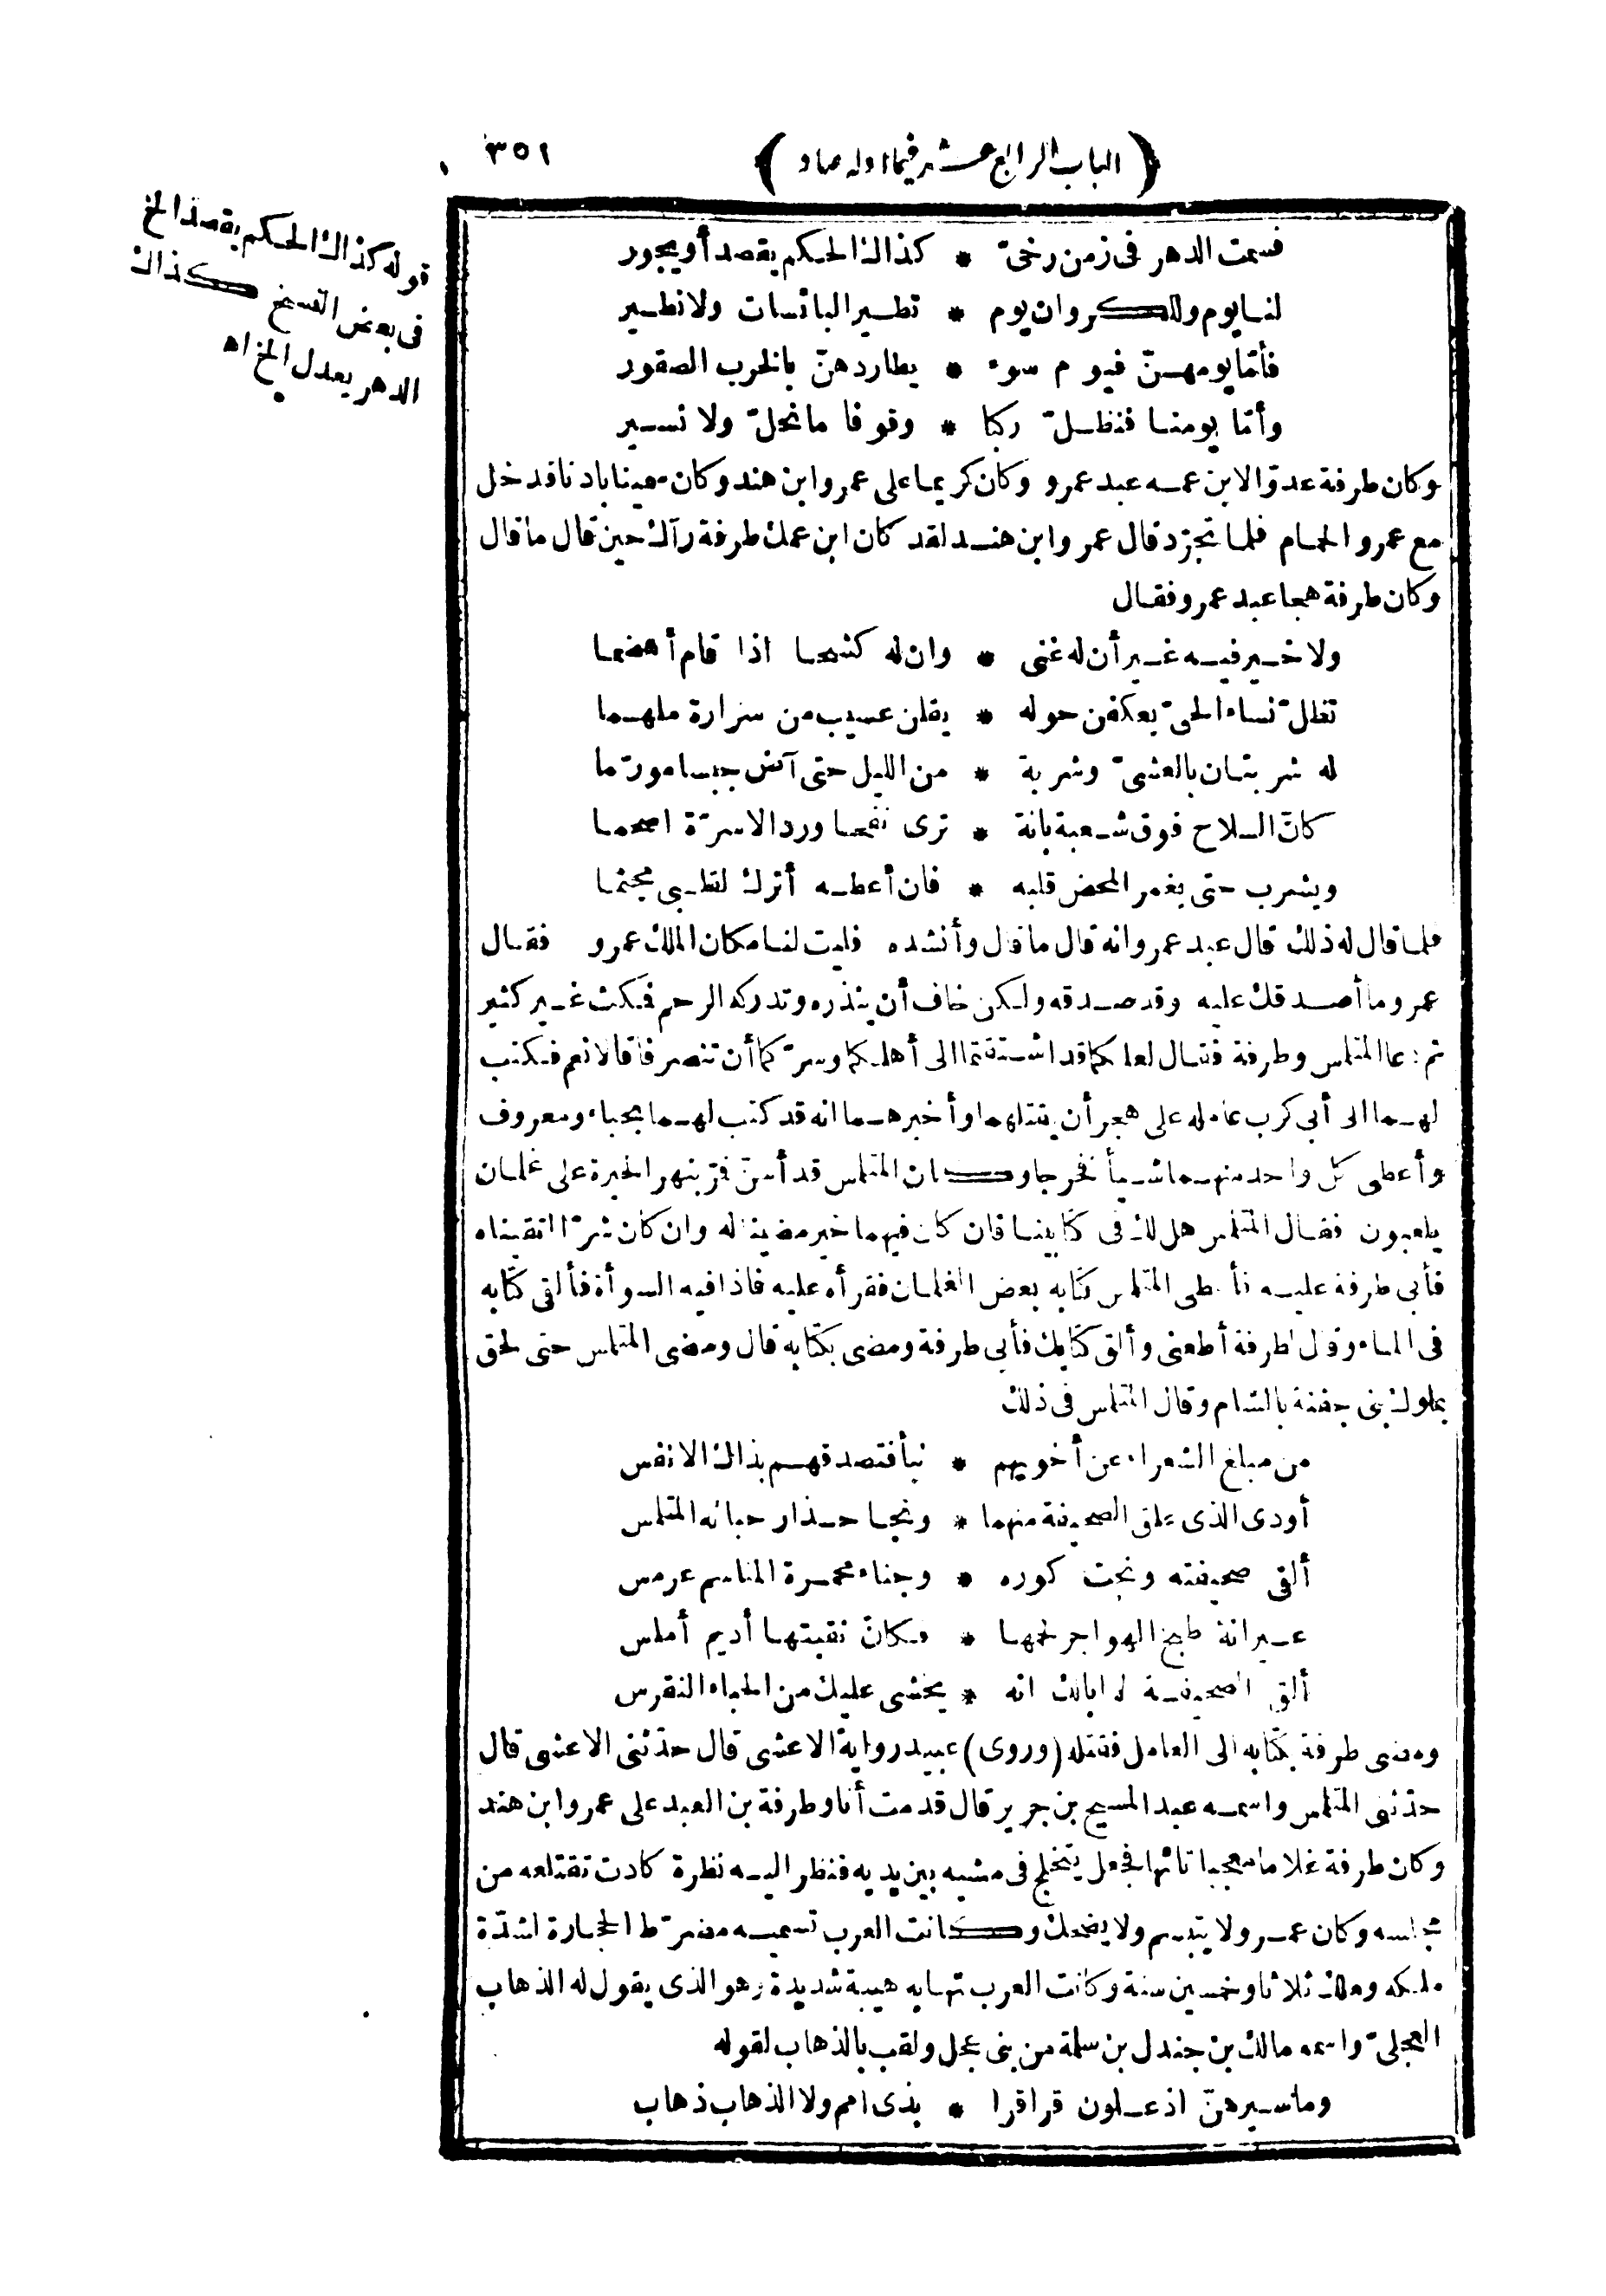 (الباب الرابع عشر فيما اوله صاد)
٣٥١
قسمت الدهر فى زمن رخىّ * كذاك الحكم يقصد أو يجور
لنا يوم وللكروان يوم * تطير البائسات ولا نطير
فأمّا يومهنّ فيوم سوء * يطاردهنّ بالخرب الصقور
وأمّا يومنا فنظلّ ركبا * وقوفا ما نحلّ ولا نسير
وكان طرفة عدوّا لابن عمه عبد عمرو وكان كريما على عمرو ابن هند وكان سمينا بادنا فدخل
مع عمرو الحمام فلما تجرّد قال عمرو ابن هند لقد كان ابن عمك طرفة رآك حين قال ما قال
وكان طرفة هجا عبد عمرو فقال
ولا خير فيه غير أن له غنى * وان له كشحا اذا قام أهضما
تظلّ نساء الحىّ يعكفن حوله * يقلن عسيب من سرارة ملهما
له شربتان بالعشىّ وشربة * من الليل حتى آض جبسا مورّما
كانّ السلاح فوق شعبة بانة * ترى نفحا ورد الاسرّة اصحما
ويشرب حتى يغمر المحض قلبه * فان أعطه أترك لقلبى مجثما
فلما قال له ذلك قال عبد عمرو انه قال ما قال وأنشده فليت لنا مكان الملك عمرو فقال
عمرو ما أصدقك عليه وقد صدقه ولكن خاف أن ينذره وتدركه الرحم فمكث غير كثير
ثم دعا المتلمس وطرفة فقال لعلكما قد اشتقتما الى أهلكما وسرّكما أن تنصرفا قالا نعم فكتب
لهما الى أبى كرب عامله على هجر أن يقتلهما وأخبرهما انه قد كتب لهما بحباء ومعروف
وأعطى كل واحد منهما شيأ فخرجا وكان المتلمس قد أسنّ فمرّ بنهر الحيرة على غلمان
يلعبون فقال المتلمس هل لك فى كتابينا فان كان فيهما خير مضينا له وان كان شرّا اتقيناه
فأبى طرفة عليه فأعطى المتلمس كتابه بعض الغلمان فقرأه عليه فاذا فيه السوأة فألقى كتابه
فى الماء وقال لطرفة أطعنى وألق كتابك فأبى طرفة ومضى بكتابه قال ومضى المتلمس حتى لحق
بملوك بنى جفنة بالشام وقال المتلمس فى ذلك
من مبلغ الشعراء عن أخويهم * نبأ فتصدقهم بذاك الانفس
أودى الذى علق الصحيفة منهما * ونجا حذار حبائه المتلمس
ألقى صحيفته ونجت كوره * وجناء مجمرة المناسم عرمس
عيرانة طبخ الهواجر لحمها * فكانّ نقبتها أديم أملس
ألق الصحيفة لا ابالك انه * يخشى عليك من الحباء النقرس
ومضى طرفة بكتابه الى العامل فقتله (وروى) عبيد رواية الاعشى قال حدّثنى الاعشى قال
حدّثنى المتلمس واسمه عبد المسيح بن جرير قال قدمت أنا وطرفة بن العبد على عمرو ابن هند
وكان طرفة غلاما معجبا تائها فجعل يتخلج فى مشيه بين يديه فنظر اليه نظرة كادت تقتلعه من
مجلسه وكان عمرو لا يتبسم ولا يضحك وكانت العرب تسميه مضرّط الحجارة لشدّة
ملكه وملك ثلاثا وخمسين سنة وكانت العرب تهابه هيبة شديدة وهو الذى يقول له الذهاب
العجلىّ واسمه مالك بن جندل بن سلمة من بنى عجل ولقب بالذهاب لقوله
وما سيرهنّ اذ علون قراقرا * بذى امم ولا الذهاب ذهاب
قوله كذاك الحكم يقصد الخ
فى بعض النسخ كذاك
الدهر يعدل الخ اه